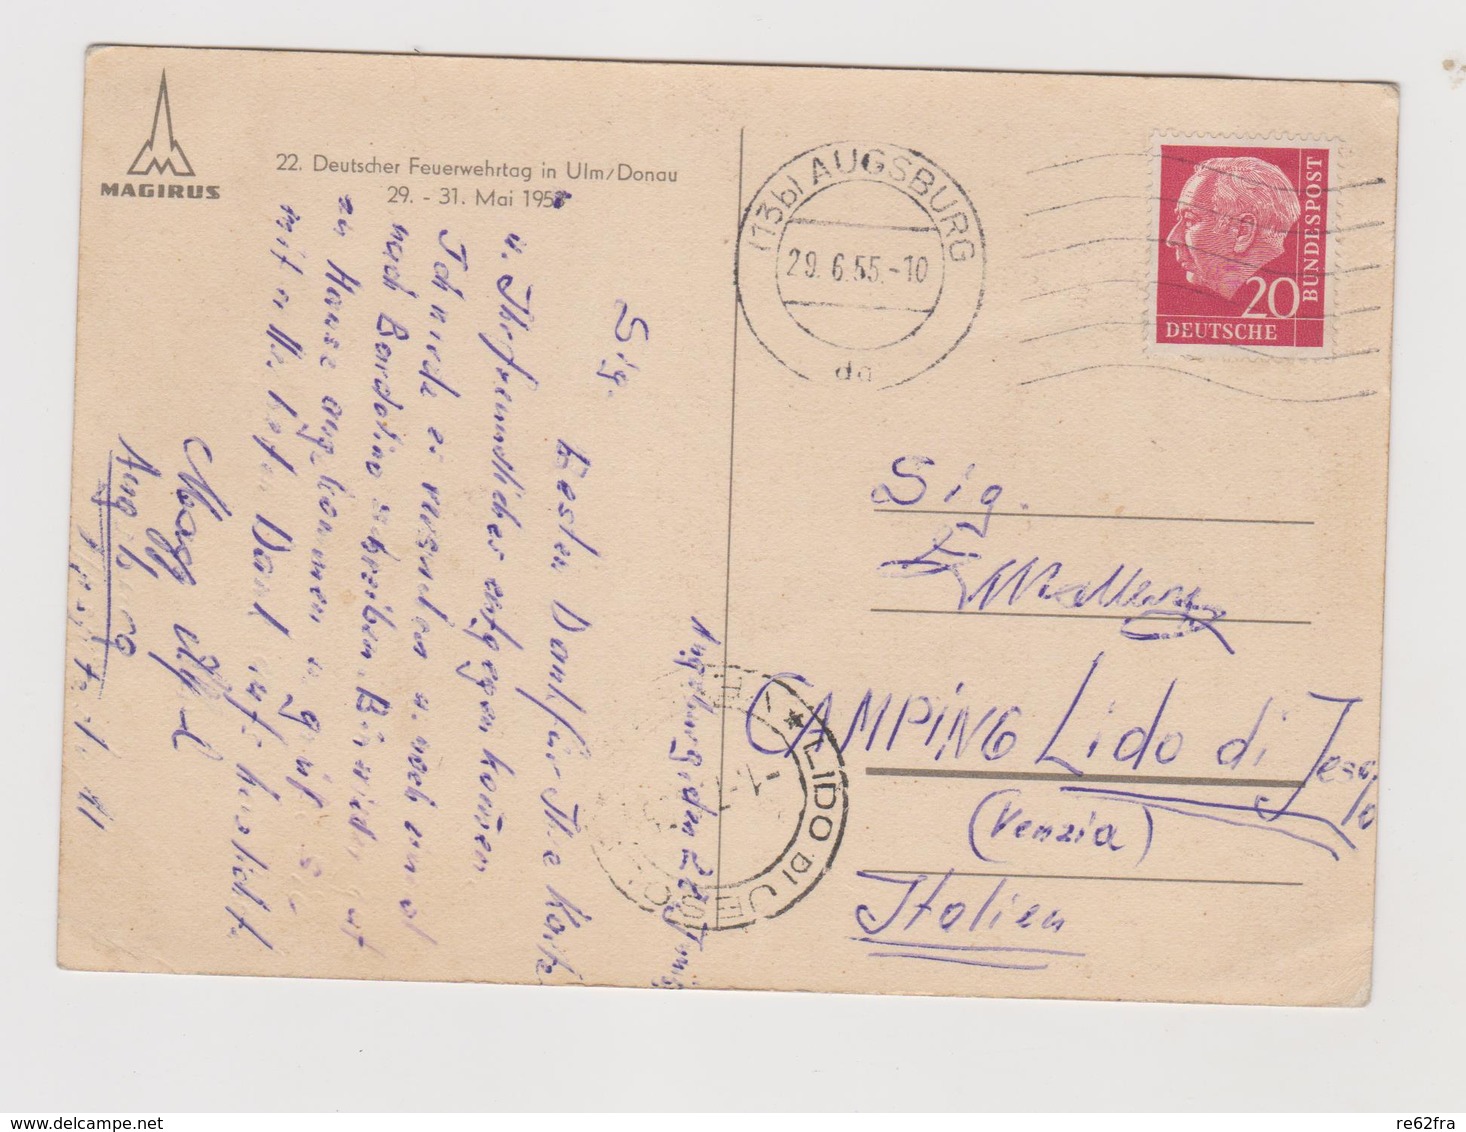 MAGIRUS
22. Deutscher Feuerwehrtag in Ulm/Donau
29. - 31. Mai 195
(13b) AUGSBURG
29.6.55.-10
da
20
DEUTSCHE
BUNDESPOST
Augsburg, den 28 Juni
Sig.
Besten Dank für Ihre Karte
u. Ihr freundliches entgegenkommen
Ich werde versuchen u. noch einmal
nach Bardolino schreiben. Bin wieder gut
zu Hause angekommen u. grüße Sie
mit herzlichste
Augsburg
LIDO DI JESOLO
-1.-7
Sig.
CAMPiNG Lido di Jesolo
(Venezia)
Italien
www.delcampe.net
re62fra